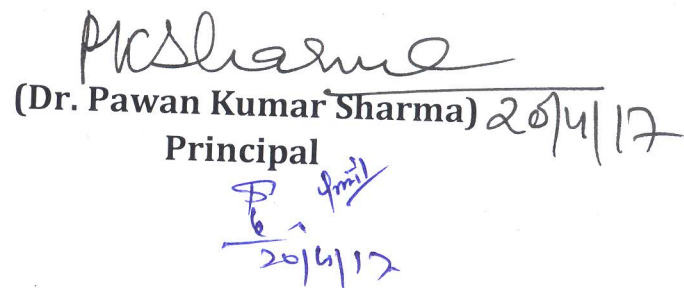 PKSharma
(Dr. Pawan Kumar Sharma) 20/4/17
Principal
20/4/17